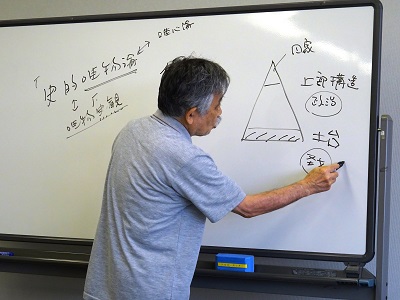 「史的唯物論
唯心論
唯物史観
国家
上部構造
政治
土台